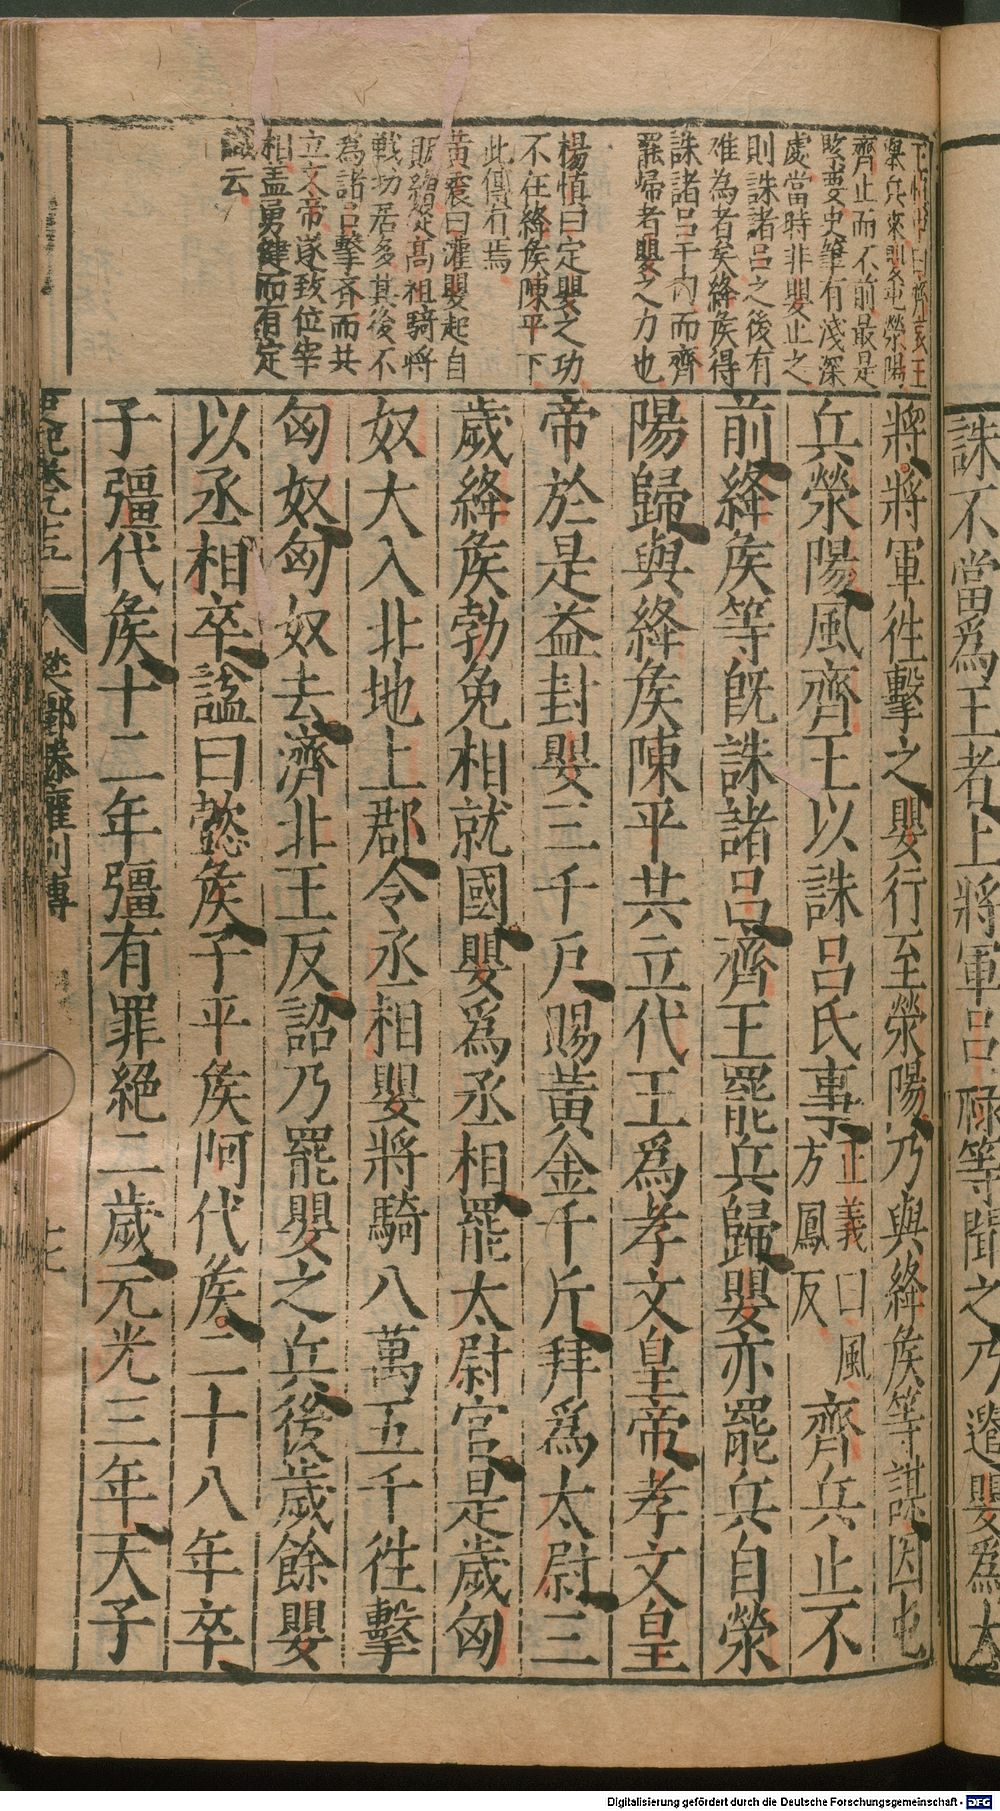 誅不當爲王者上將軍呂祿等聞之乃遣嬰爲大
將將軍徃擊之嬰行至滎陽乃與絳矦等謀因屯
兵滎陽風齊王以誅呂氏事正義曰風方鳳反齊兵止不
前絳矦等既誅諸呂齊王罷兵歸嬰亦罷兵自滎
陽歸與絳矦陳平共立代王爲孝文皇帝孝文皇
帝於是益封嬰三千戶賜黃金千斤拜爲太尉三
歲絳矦勃免相就國嬰爲丞相罷太尉官是歲匈
奴大入北地上郡令丞相嬰將騎八萬五千徃擊
匈奴匈奴去濟北王反詔乃罷嬰之兵後歲餘嬰
以丞相卒謚曰懿矦子平矦阿代矦二十八年卒
子彊代矦十二年彊有罪絕二歲元光三年天子
舉兵來
齊止而不前最是
敗變史筆有淺深
處當時非嬰止之
則誅諸呂之後有
难為者矣絳矦得
誅諸呂于內而齊
罷歸者嬰之力也
楊慎曰定嬰之功
不在絳矦陳平下
此傳有焉
黃震曰灌嬰起自
販繒從高祖騎將
戰功居多其後不
為諸呂擊齊而共
立文帝遂致位宰
相盖勇徤而有定
識云
樊酈滕灌列傳
十七
Digitalisierung gefördert durch die Deutsche Forschungsgemeinschaft - DFG